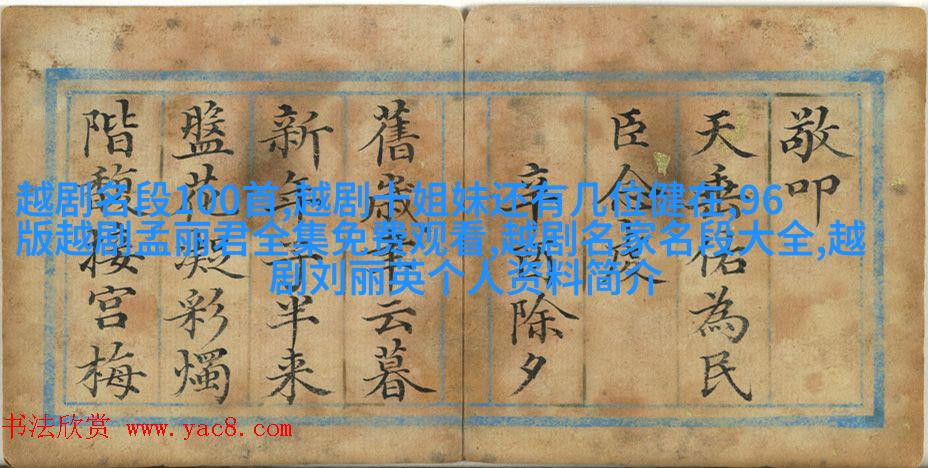 敬叩
天垂佑為民
臣
辛除夕
舊歲云暮
新年子半来
盤花凝彩燭
階馥接宮梅
越剧名段100首,越剧十姐妹还有几位健在,96
版越剧孟丽君全集免费观看,越剧名家名段大全,越
剧刘丽英个人资料简介
书法欣赏 www.yac8.com